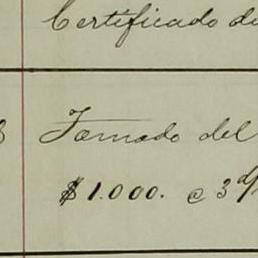 Certificado de
Tomado del
$1.000. @ 3 d/